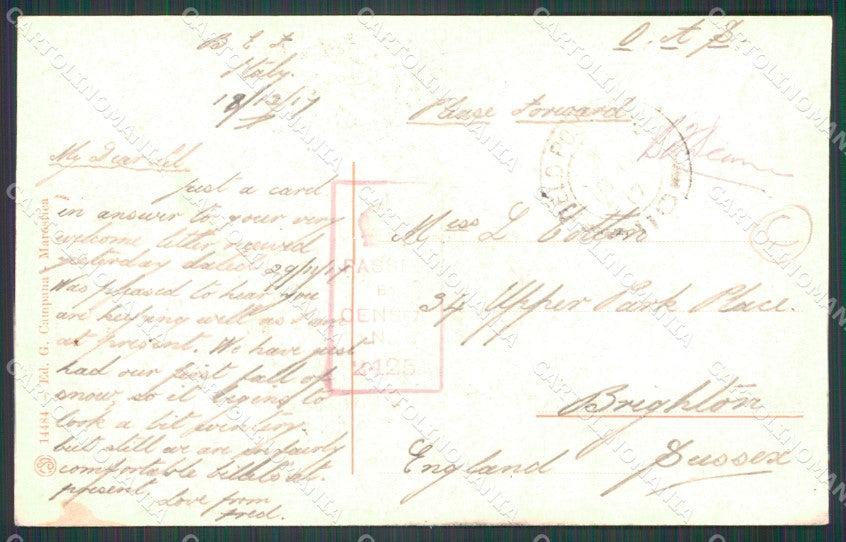 B E F
Italy.
18/12/17
My Dear Lil
Just a card
in answer to your very
welcome letter received
yesterday dated 29/11/17
Was pleased to hear you
are keeping well as I am
at present. We have just
had our first fall of
snow, so it begins to
look a bit
but still we are in fairly
comfortable billets at
present
Love from
Fred.
O. A. S
Please Forward
FIELD PO
Miss L Cotton
34 Upper Park Place.
Brighton
England Sussex
PASSE
CENSO
N
4125
C
14484 - Ed. G. Campana - Marostica
CARTOLINOMANIA